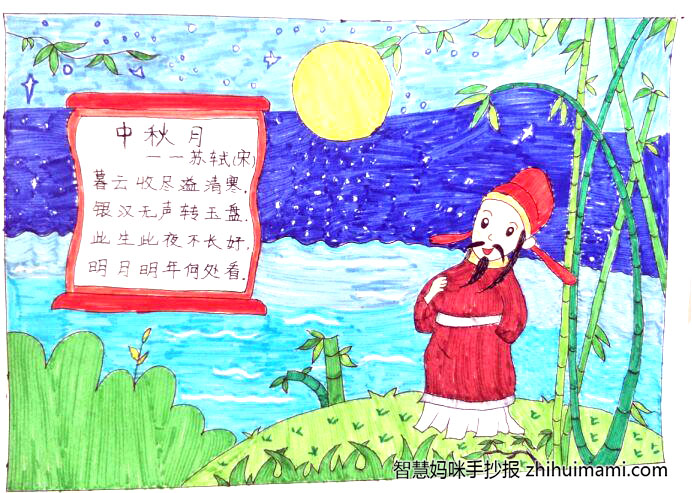 中秋月
——苏轼(宋)
暮云收尽溢清寒.
银汉无声转玉盘.
此生此夜不长好.
明月明年何处看.
智慧妈咪手抄报 zhihuimami.com